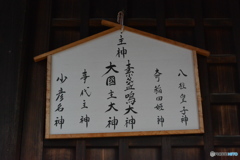 主神
八柱皇子神
奇稲田姫神
素盞嗚大神
大國主大神
事代主神
少彦名神